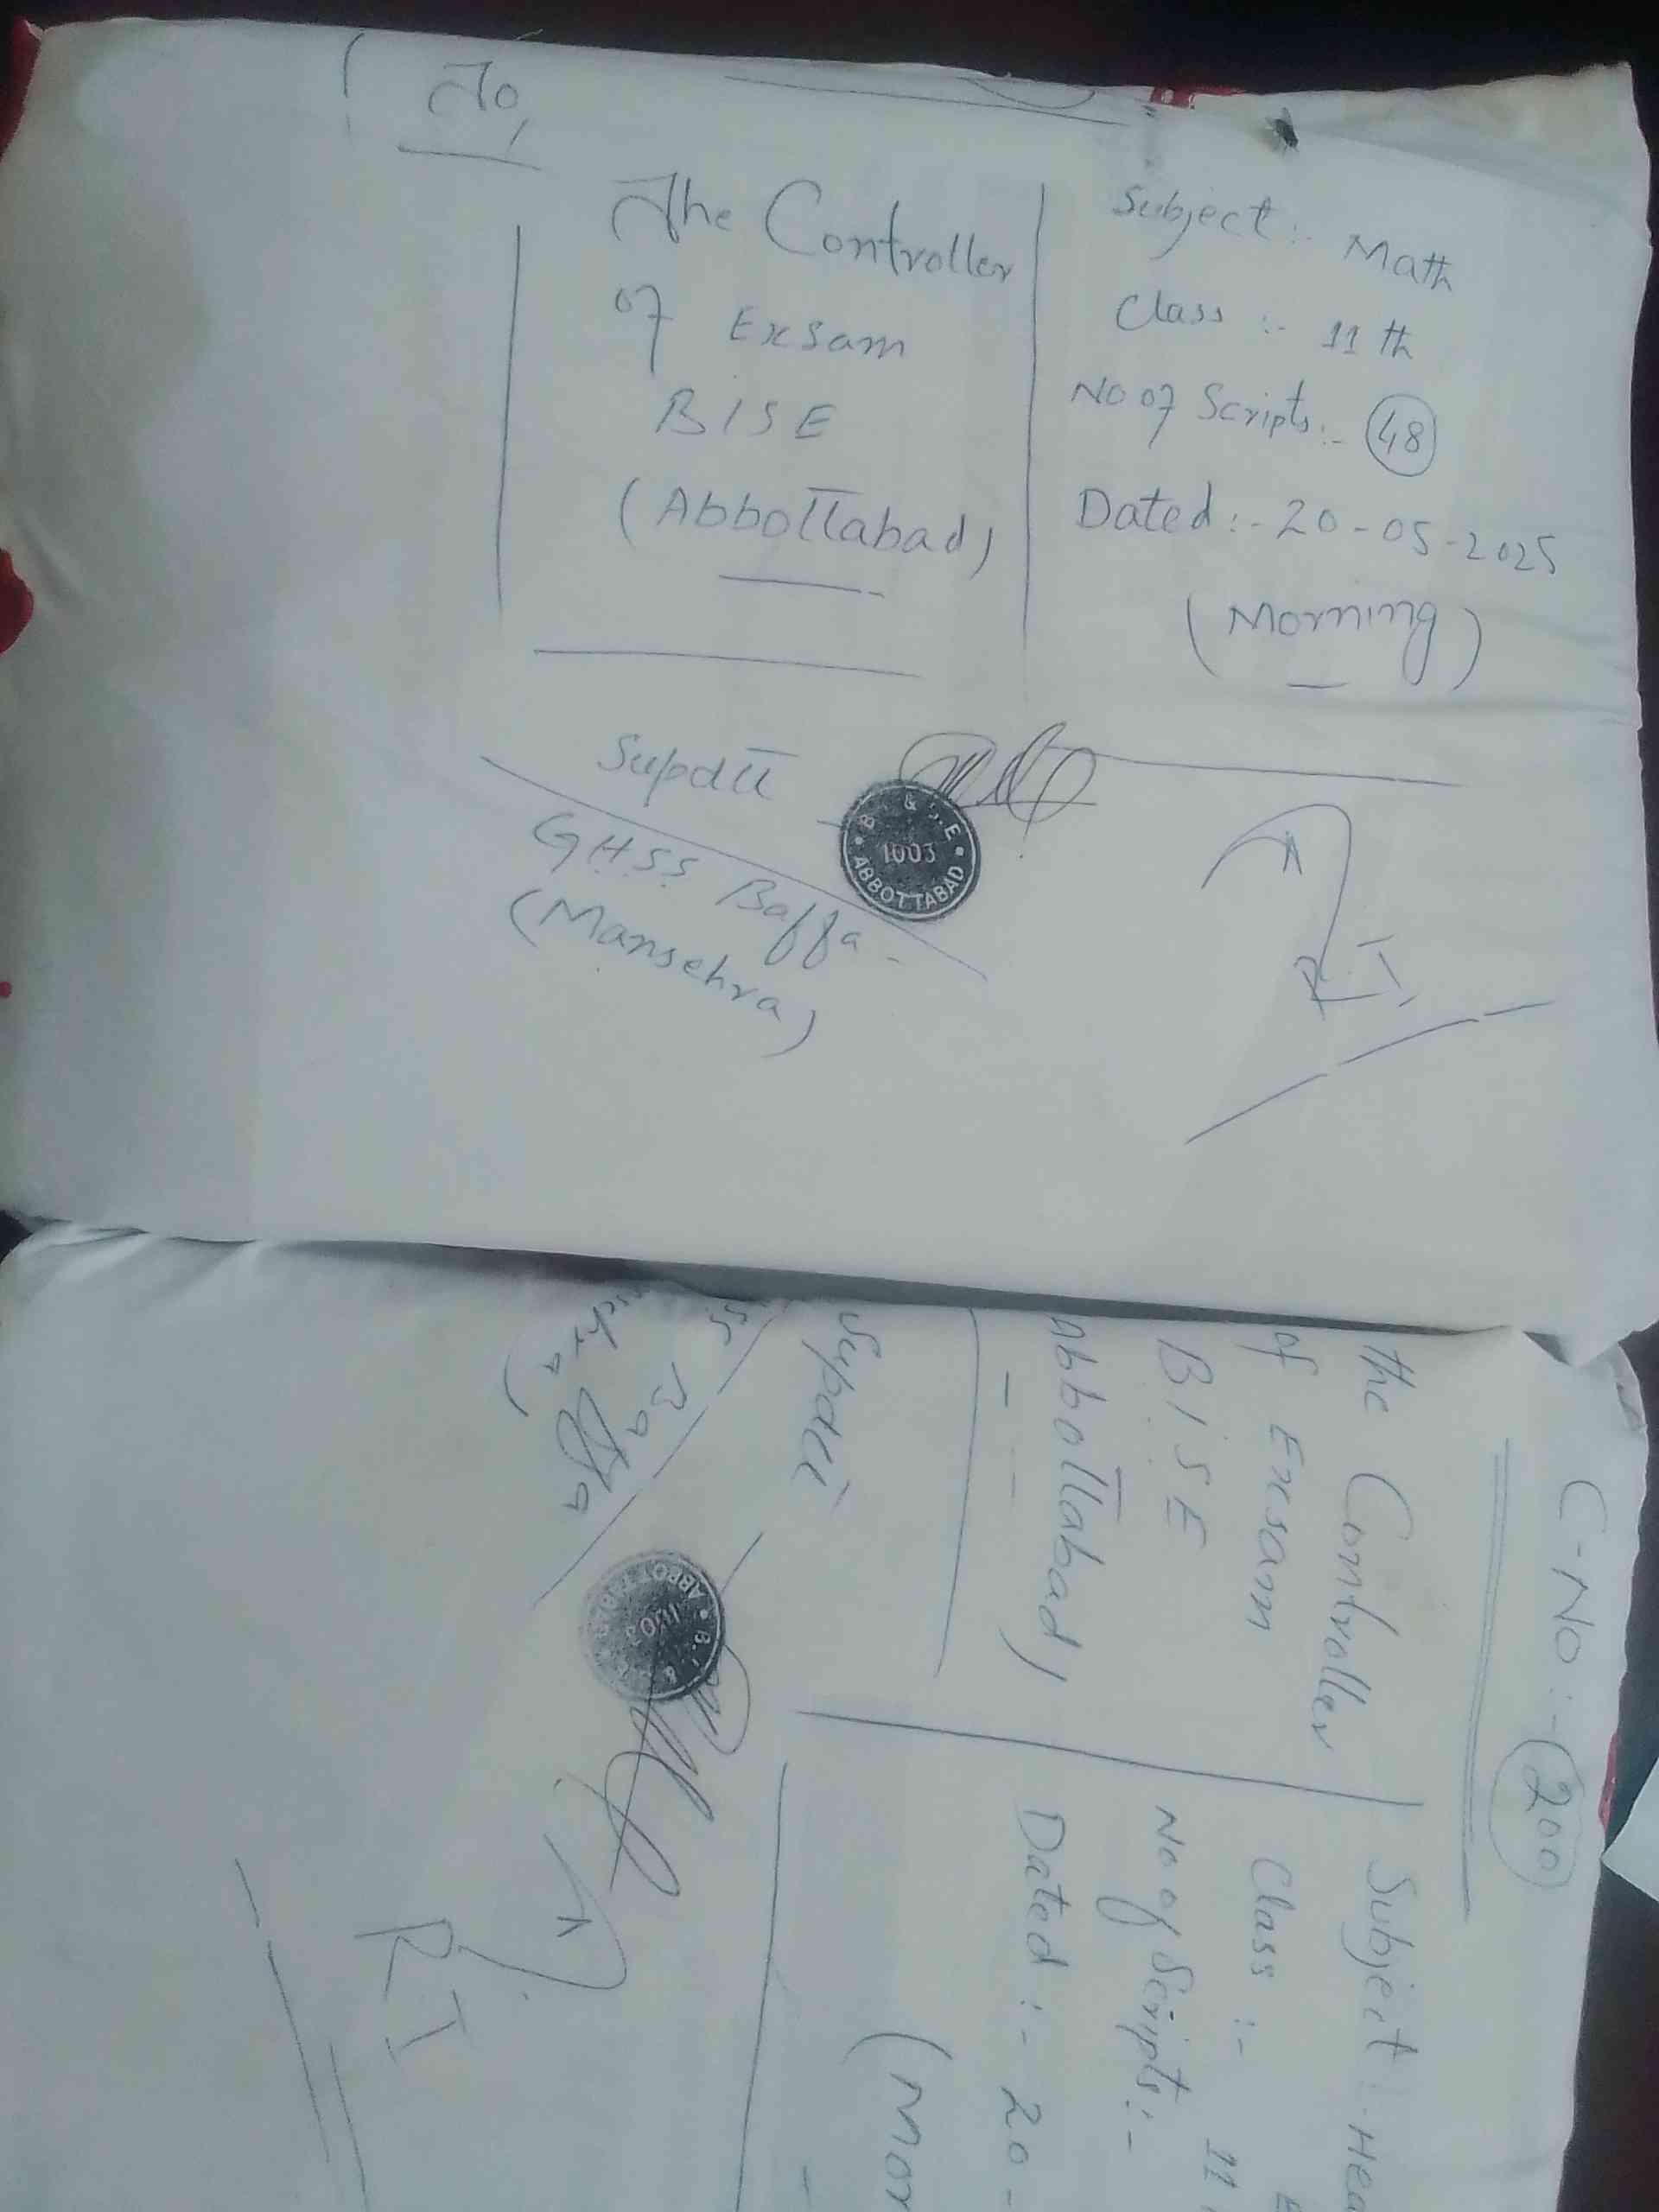 To,
The Controller
of Exsam
BISE
(Abbottabad)
Subject:- Math
Class :- 11th
No of Scripts:- 48
Dated:- 20-05-2025
(Morning)
Supdtt
G.H.S.S Baffa
(Mansehra)
B.I & S.E
1003
ABBOTTABAD
R I
C-No:- 200
the Controller
of Exsam
BISE
Abbottabad)
Subject
Class :- 11
No of Scripts:-
Dated :- 20-
(Mor
Supdtt
Baffa
ABBOTTABAD
R I